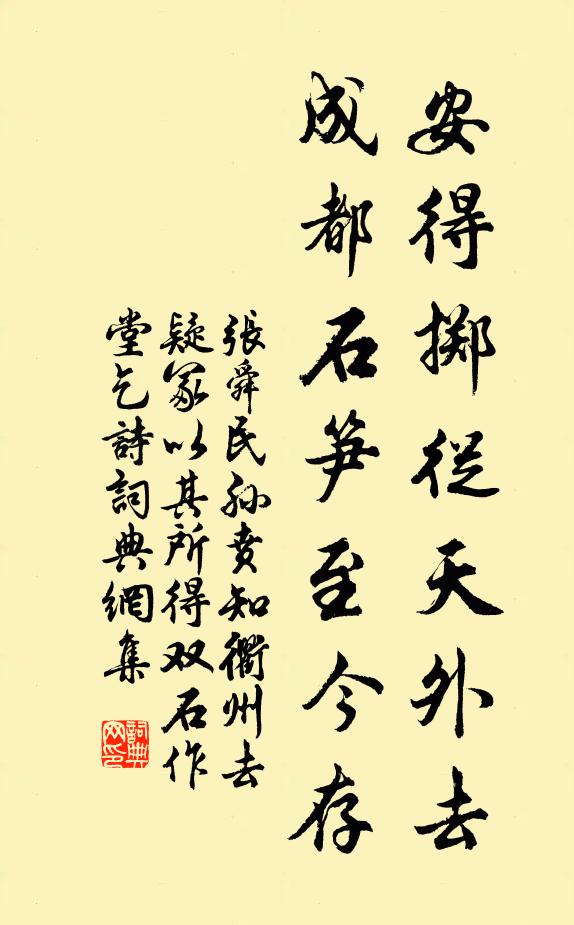 安得掷從天外去
成都石笋至今存
張舜民孙賁知衢州去
疑冢以其所得双石作
堂乞詩詞典網集
詞典网印